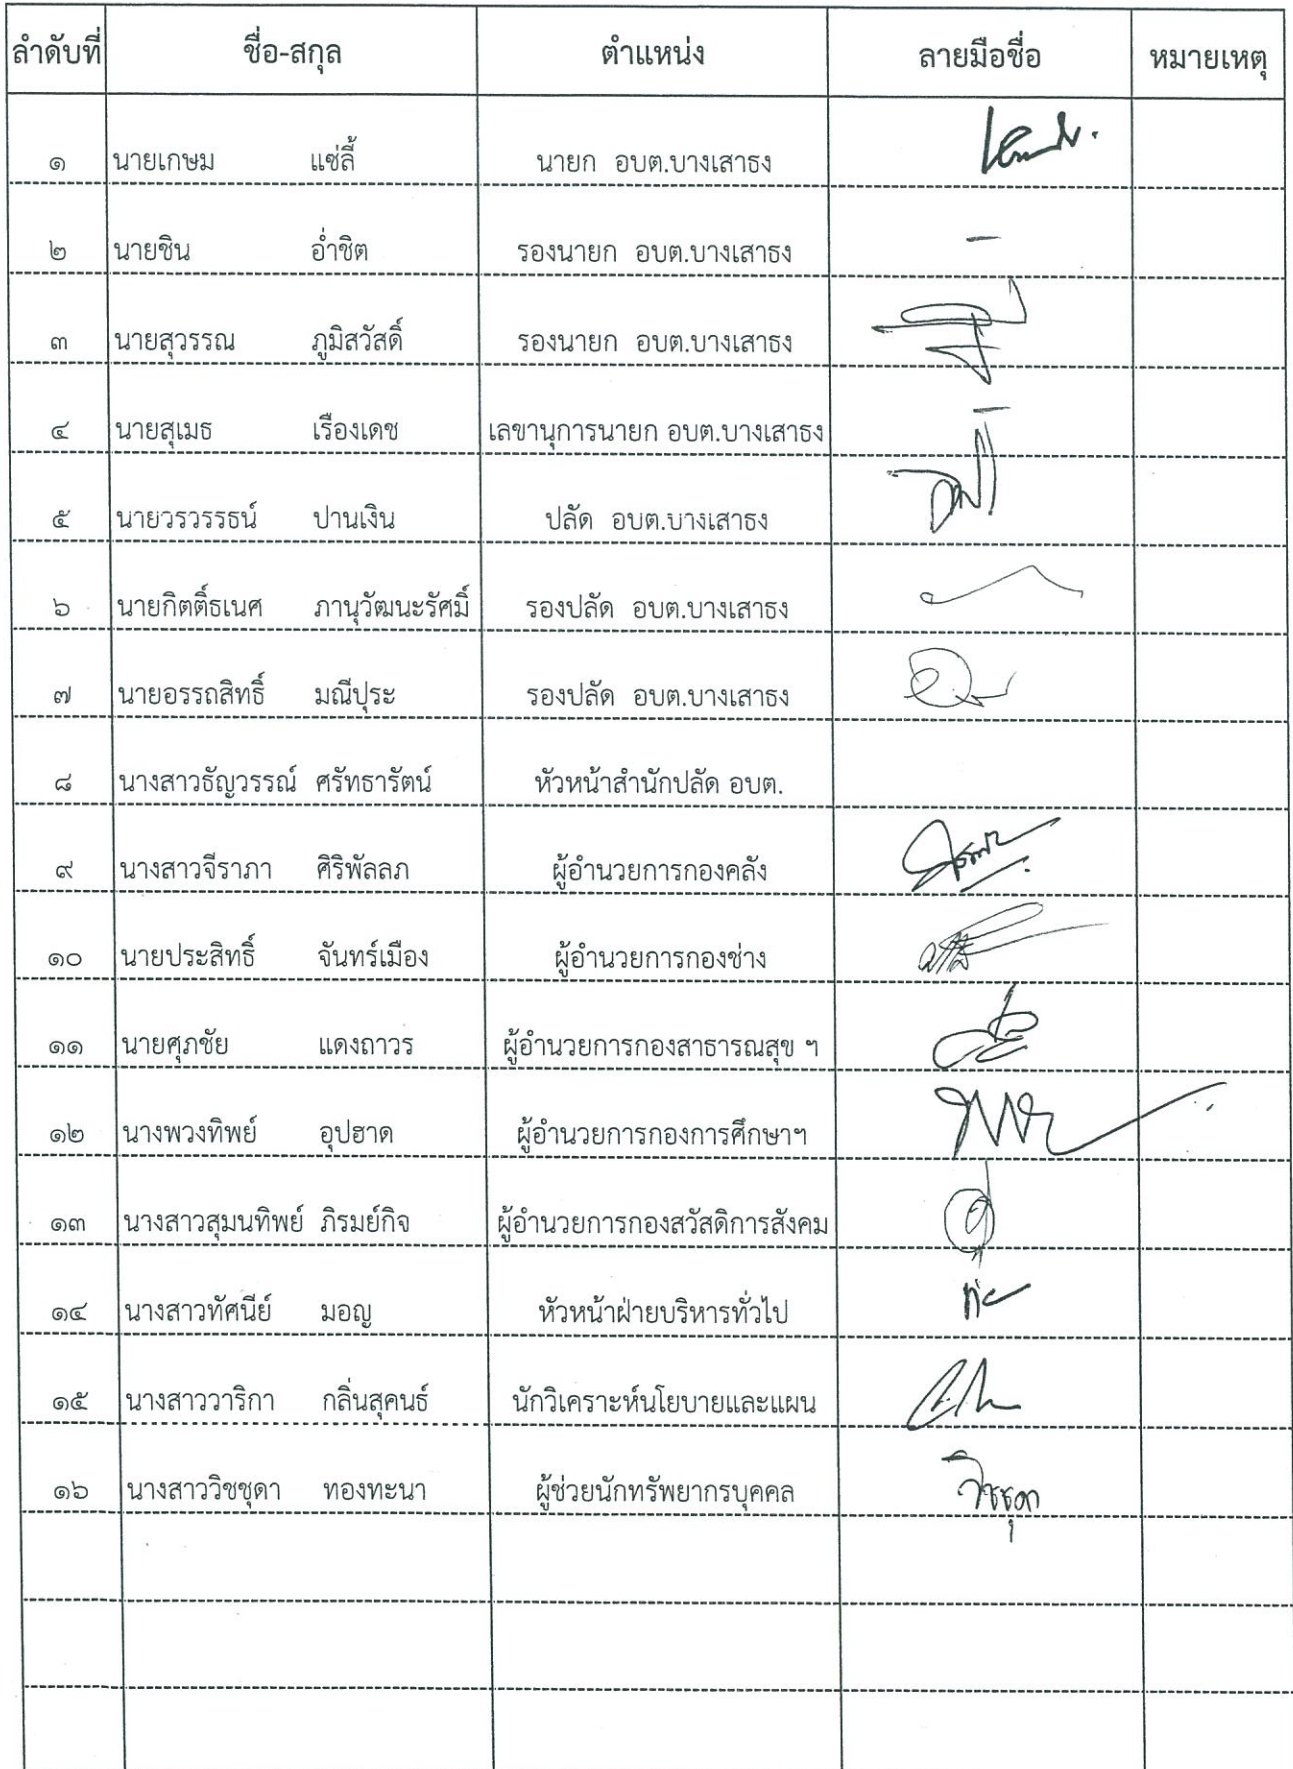 ลำดับที่ ชื่อ-สกุล ตำแหน่ง ลายมือชื่อ หมายเหตุ
๑ นายเกษม แซ่ลี้ นายก อบต.บางเสาธง
๒ นายชิน อ่ำชิต รองนายก อบต.บางเสาธง -
๓ นายสุวรรณ ภูมิสวัสดิ์ รองนายก อบต.บางเสาธง
๔ นายสุเมธ เรืองเดช เลขานุการนายก อบต.บางเสาธง -
๕ นายวรวรรธน์ ปานเงิน ปลัด อบต.บางเสาธง
๖ นายกิตติ์ธเนศ ภานุวัฒนะรัศมิ์ รองปลัด อบต.บางเสาธง
๗ นายอรรถสิทธิ์ มณีปุระ รองปลัด อบต.บางเสาธง
๘ นางสาวธัญวรรณ์ ศรัทธารัตน์ หัวหน้าสำนักปลัด อบต.
๙ นางสาวจีราภา ศิริพัลลภ ผู้อำนวยการกองคลัง
๑๐ นายประสิทธิ์ จันทร์เมือง ผู้อำนวยการกองช่าง
๑๑ นายศุภชัย แดงถาวร ผู้อำนวยการกองสาธารณสุข ฯ
๑๒ นางพวงทิพย์ อุปฮาด ผู้อำนวยการกองการศึกษาฯ
๑๓ นางสาวสุมนทิพย์ ภิรมย์กิจ ผู้อำนวยการกองสวัสดิการสังคม
๑๔ นางสาวทัศนีย์ มอญ หัวหน้าฝ่ายบริหารทั่วไป
๑๕ นางสาววาริกา กลิ่นสุคนธ์ นักวิเคราะห์นโยบายและแผน
๑๖ นางสาววิชชุดา ทองทะนา ผู้ช่วยนักทรัพยากรบุคคล วิชชุดา